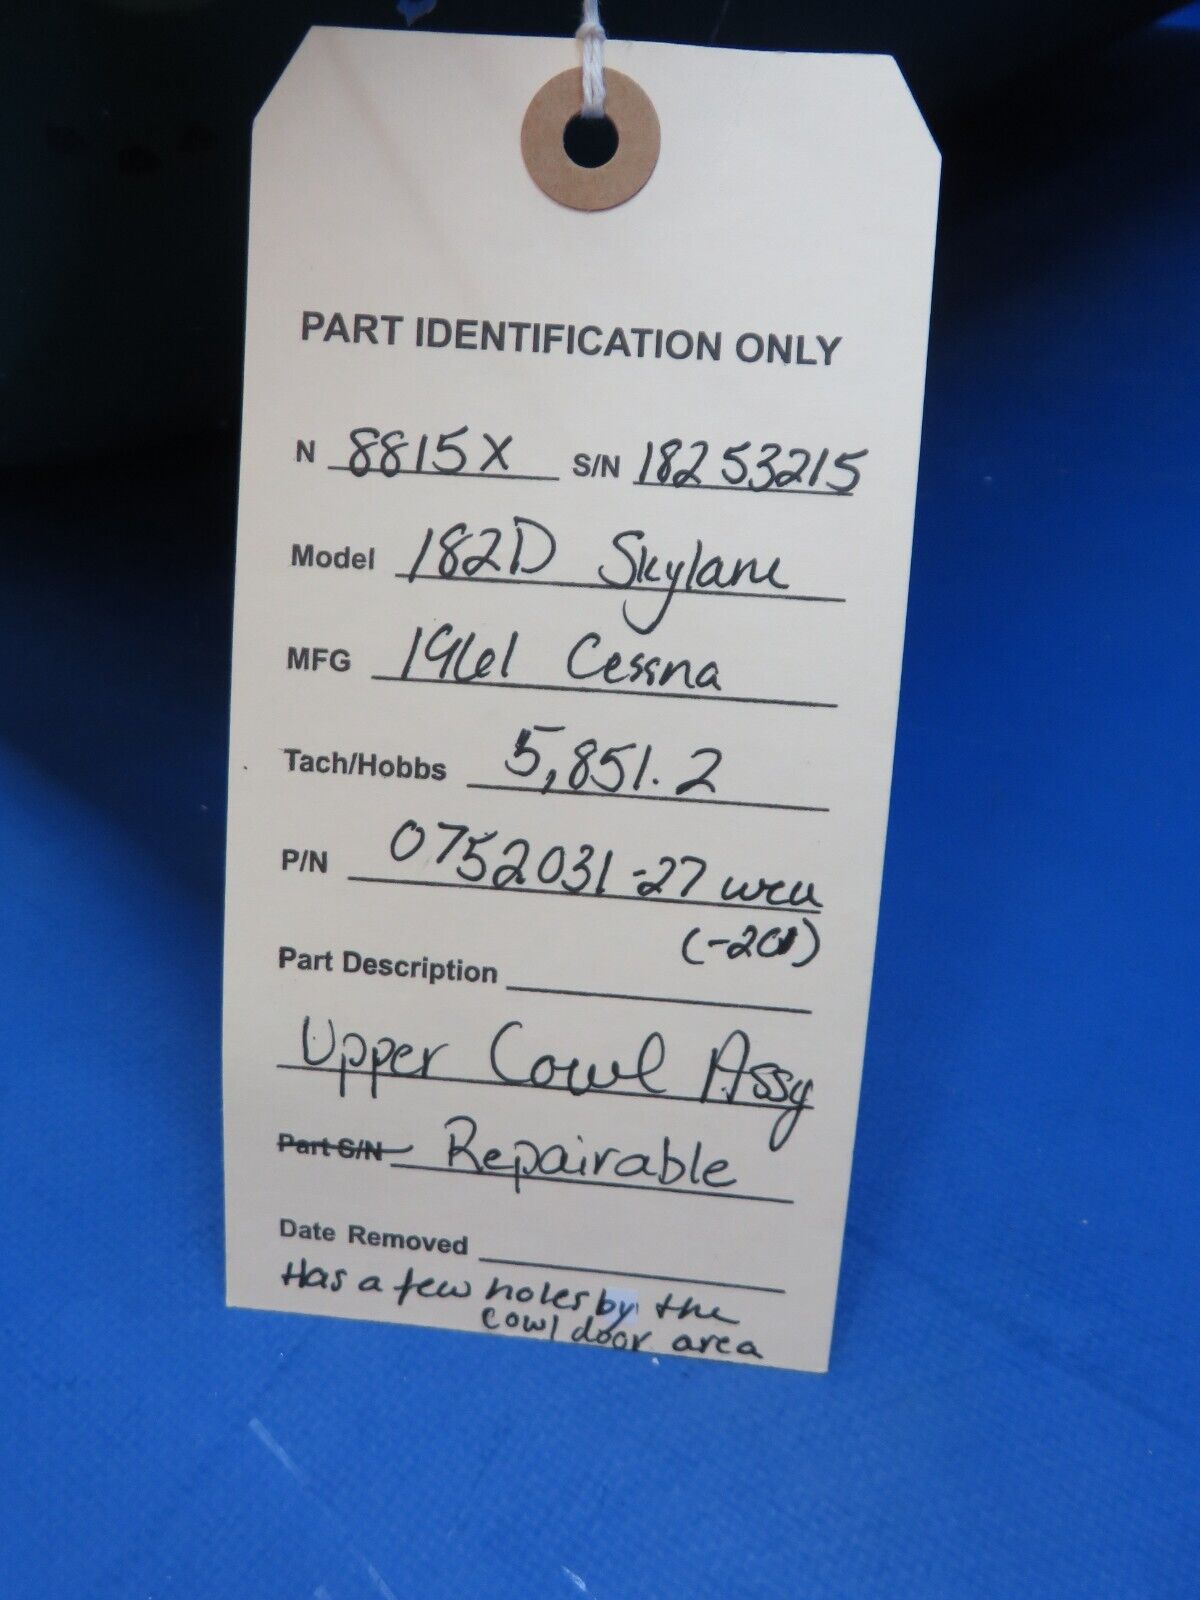 PART IDENTIFICATION ONLY
N 8815X S/N 18253215
Model 182D Skylane
MFG 1961 Cessna
Tach/Hobbs 5,851.2
P/N 0752031-27 wcu
(-201)
Part Description
Upper Cowl Assy
Part S/N Repairable
Date Removed
Has a few holes by the
cowl door area